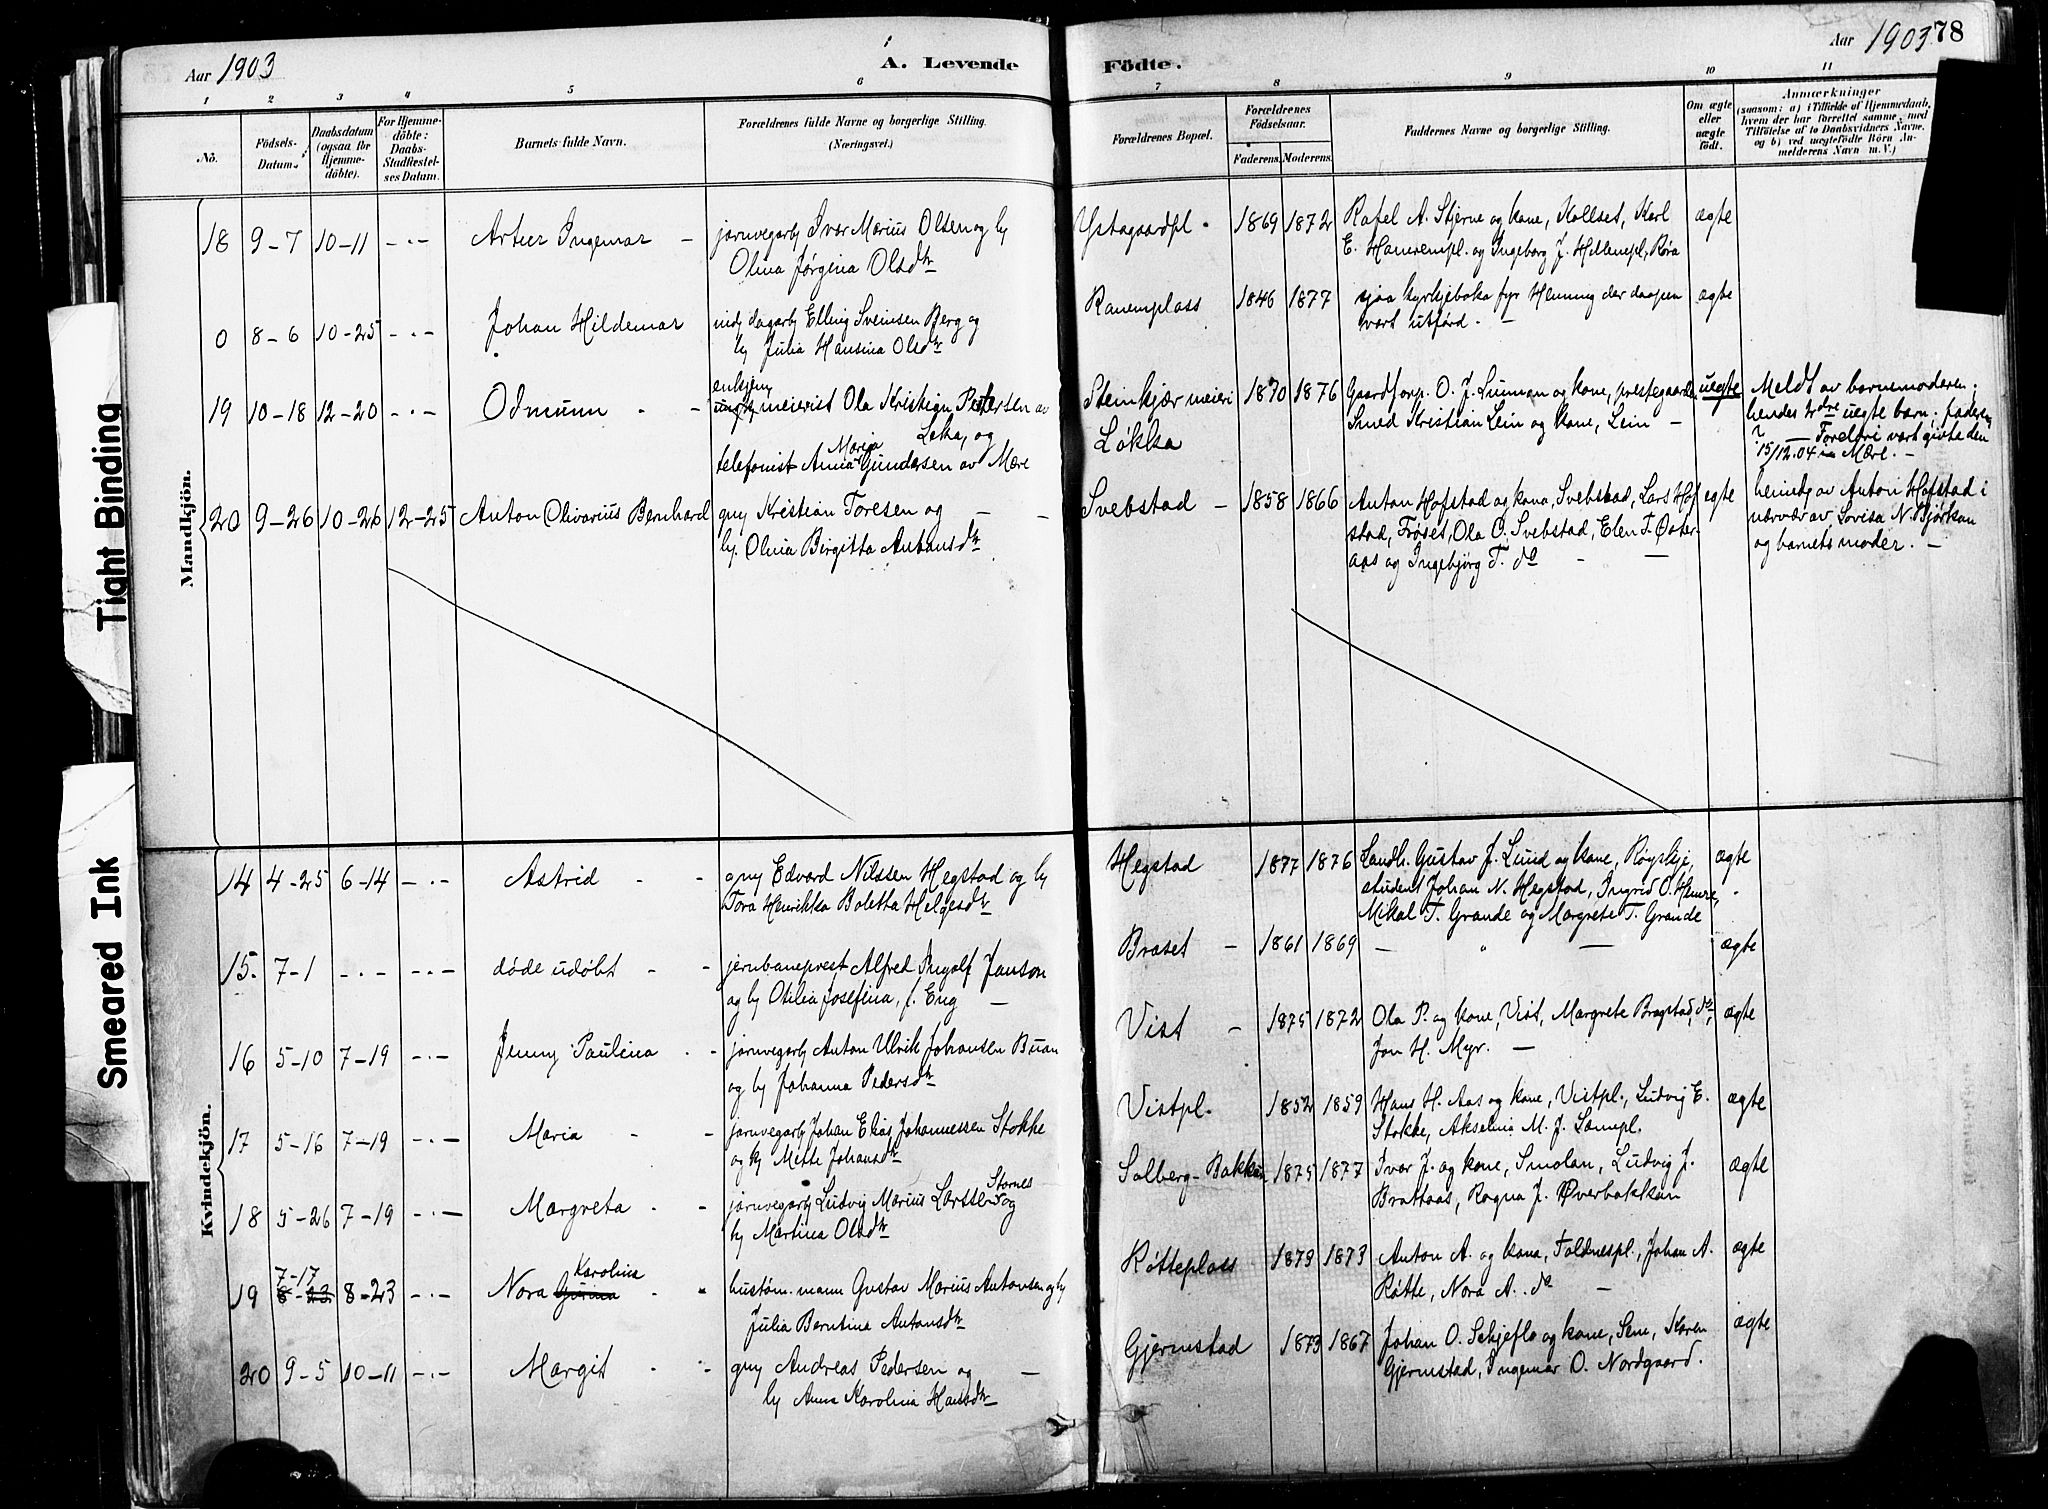 Aar 1903
A. Levende
Födte.
Aar 1903
78
1 2 3 4 5 6 7 8 9 10 11
No.
Födsels-
Datum.
Daabsdatum
(ogsaa for
Hjemme-
döbte).
For Hjemme-
döbte:
Daabs-
Stadfæstel-
ses Datum.
Barnets fulde Navn.
Forældrenes fulde Navne og borgerlige Stilling.
(Næringsvei.)
Forældrenes Bopæl.
Forældrenes
Födselsaar.
Faderens. Moderens.
Faddernes Navne og borgerlige Stilling.
Om ægte
eller
uægte
födt.
Anmærkninger
(saasom: a) i Tilfælde af Hjemmedaab,
hvem der har forrettet samme, med
Tilföielse af to Daabsvidners Navne.
og b) ved uægtefödte Börn An-
melderens Navn m. V.)
Mandkjön.
18 9-7 10-11 -.- Artur Ingemar - jarnvegarb Ivar Marius Olsen og hy
Olina Jørgina Olsdtr
Ystagaardpl. 1869 1872 Rafel A. Stjerne og kone, Kollset, Karl
E. Hameremp​l. og Ingeborg J. Hellempl, Røra
ægte
0 8-6 10-25 -.- Johan Hildemar indy dagarb Elling Sveinsen Berg og
hy Julia Hansina Olsdtr
Ranemplass 1846 1877 sjaa kyrkjeboka fyr Henning der daapen
vart utførd. -
ægte
19 10-18 12-20 -.- Odmunn - - enkjem
meierist Ola Kristian Petersen av
Leka, og
telefonist Anna Maria Gundersen av Mære
Steinkjær meieri
Løkka
1870 1876 Gaardforp. O. J. Lunnan og kone, prestegaarden
Smed Kristian Lein og kone, Lein -
uegte
Meldt av barnemoderen;
hendes 2dre uegte barn; faderens
? - Foreldri vart givte den
15/12.04 Mære. -
20 9-26 10-26 12-25 Anton Olivarius Bernhard gmy Kristian Toresen og - -
hy. Olina Birgitta Antonsdtr
Svebstad - 1858 1866 Anton Hofstad og kona, Svebstad, Lars Hof
stad, Frøset, Ola O. Svebstad, Elen T. Øster-
aas og Ingebjørg T. do - -
egte
heimdp av Anton Hofstad i
nærvær av Lovisa N. Bjørkan
og barnets moder. -
Kvindekjön.
14 4-25 6-14 -.- Astrid - - gmy Edvard Nilssen Hegstad og hy
Tora Henrikka Boletta Helgesdtr
Hegstad 1877 1876 Landh. Gustav J. Lund og kone, Røyskje,
student Johan N. Hegstad, Ingrid O. Hemre,
Mikal T. Grande og Margrete T. Grande
ægte
15. 7-1 -.- -.- døde udøbt - - jernbaneprest Alfred Ingolf Janson
og hy Otilia Josefina, f. Eng -
Braset - 1861 1869 - " - ægte
16 5-10 7-19 -.- Jenny Paulina - - jarnvegarb Anton Ulrik Johansen Buan
og hy Johanna Pedersdtr
Vist - 1875 1872 Ola P. og kone, Vist, Margrete Bragstad, do,
Jon H. Myr. -
ægte
17 5-16 7-19 -.- Maria - - jarnvegarb Johan Elias Johannessen Stokke
og hy Mette Johansdtr
Vistpl. 1852 1859 Hans H. Aas og kone, Vistpl., Ludvig E.
Stokke, Akselina M. J. Sæmpl.
ægte
18 5-26 7-19 -.- Margreta - - jarnvegarb Ludvig Marius Larssen Stornes og
hy Martina Olsdtr
Solberg-Bakkan 1875 1877 Ivar J. og kone, Smolan, Ludvig J.
Brattaas, Ragna J. Øverbakkan
ægte
19 7-17 8-23 8-23 -.- Nora Gurina Karolina - - hustøm. mann Gustav Marius Antonsen og hy
Julia Berntina Antonsdtr
Røtteplass 1873 1873 Anton A. og kona, Foldnespl., Johan A.
Røtte, Nora A. do -
ægte
20 9-5 10-11 -.- Margit - - gmy Andreas Pedersen og -
hy Anna Karolina Hansdtr
Gjermstad 1873 1867 Johan O. Schjeflo og kone, Sem, Karen
Gjermstad, Ingemar O. Nordgaard.
ægte
Tight Binding
Smeared Ink